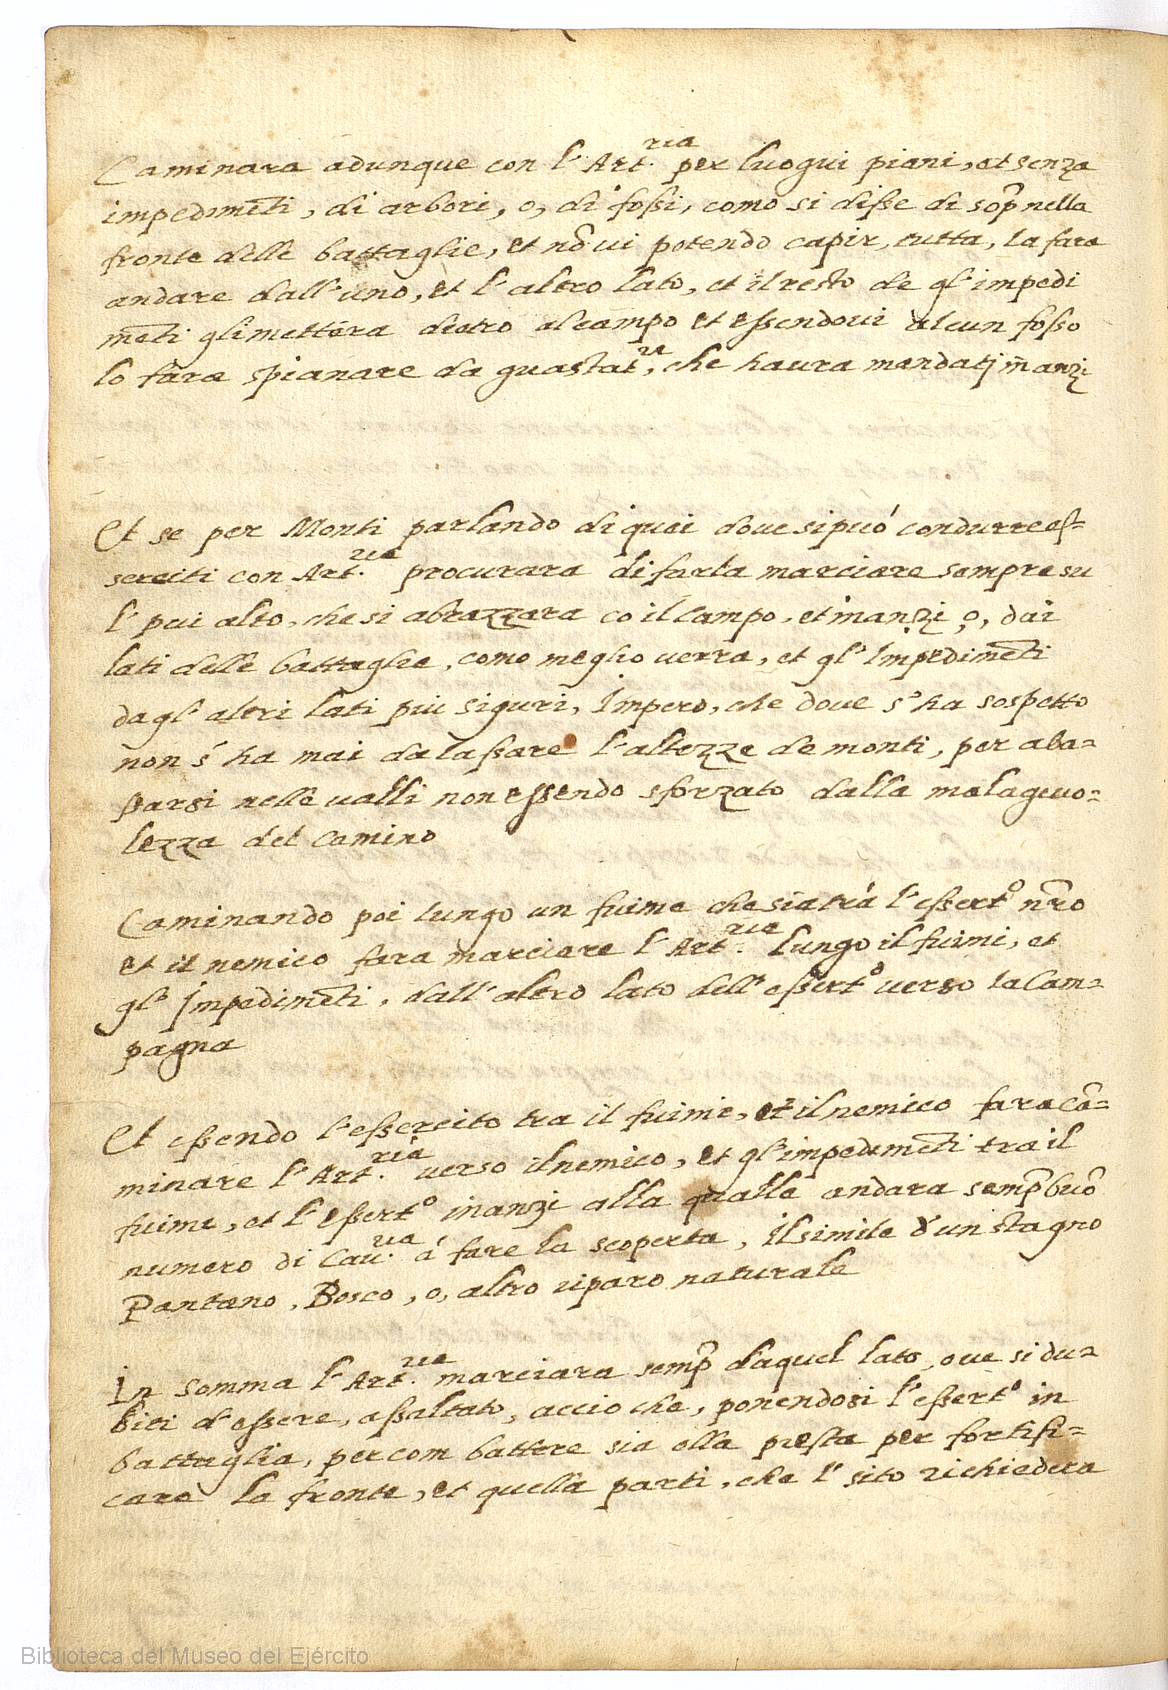 Caminara adunque con l'Art.ria per luogui piani, et senza
impedimēti, di arbori, o, di foßi, como si diße di sop̄ nella
fronte delle battaglie, et nō ui potendo capir, tutta, la fara
andare dall'uno, et l'altro lato, et il resto de gl'impedi
mēti gli mettera dietro al campo et eßendoui alcun foßo
lo farae spianare da guastat.re, che haura mandati īnanzi
Et se per Monti parlando di quei doue si puó condurre eß=
serciti con Art.ria procurara di farla marciare sempre su
l'piu alto, che si abrazzara co il Campo, et inanzi, o, dai
lati delle battaglie, como meglio uerra, et gl'Impedimēti
dagl'altri lati piu siguri, Impero, che doue s'ha sospetto
non s'ha mai da laßare l'altezze de monti, per aba=
ßarsi nelle ualli non eßendo sforzato dalla malageuo=
lezza del Camino
Caminando poi lungo un fuime che sia trá l'eßert.o nr̄o
et il nemico fara marciare l'Art.ria lungo il fuimi, et
gl'Impedimēti, dall'altro lato dell'eßert.o uerso la Cam=
pagna
Et eßendo l'eßercito tra il fuime, et il nemico fara ca=
minare l'Art.ria uerso il nemico, et gl'impedimēti tra il
fuime, et l'eßert.o inanzi alla qualle andara semp̄ buō
numero di Cau.ria á fare la scoperta, Il simile d'un stagno
Pantano, Bosco, o, altro riparo naturale
In somma l'Art.ria marciara semp̄ da quel lato, oue si du=
biti d'eßere, aßaltato, accio che, ponendosi l'eßert.o in
battaglia, per com battere sia ella presta per fortifi=
care la fronte, et quella parti, che l'sito richiedera
Biblioteca del Museo del Ejército